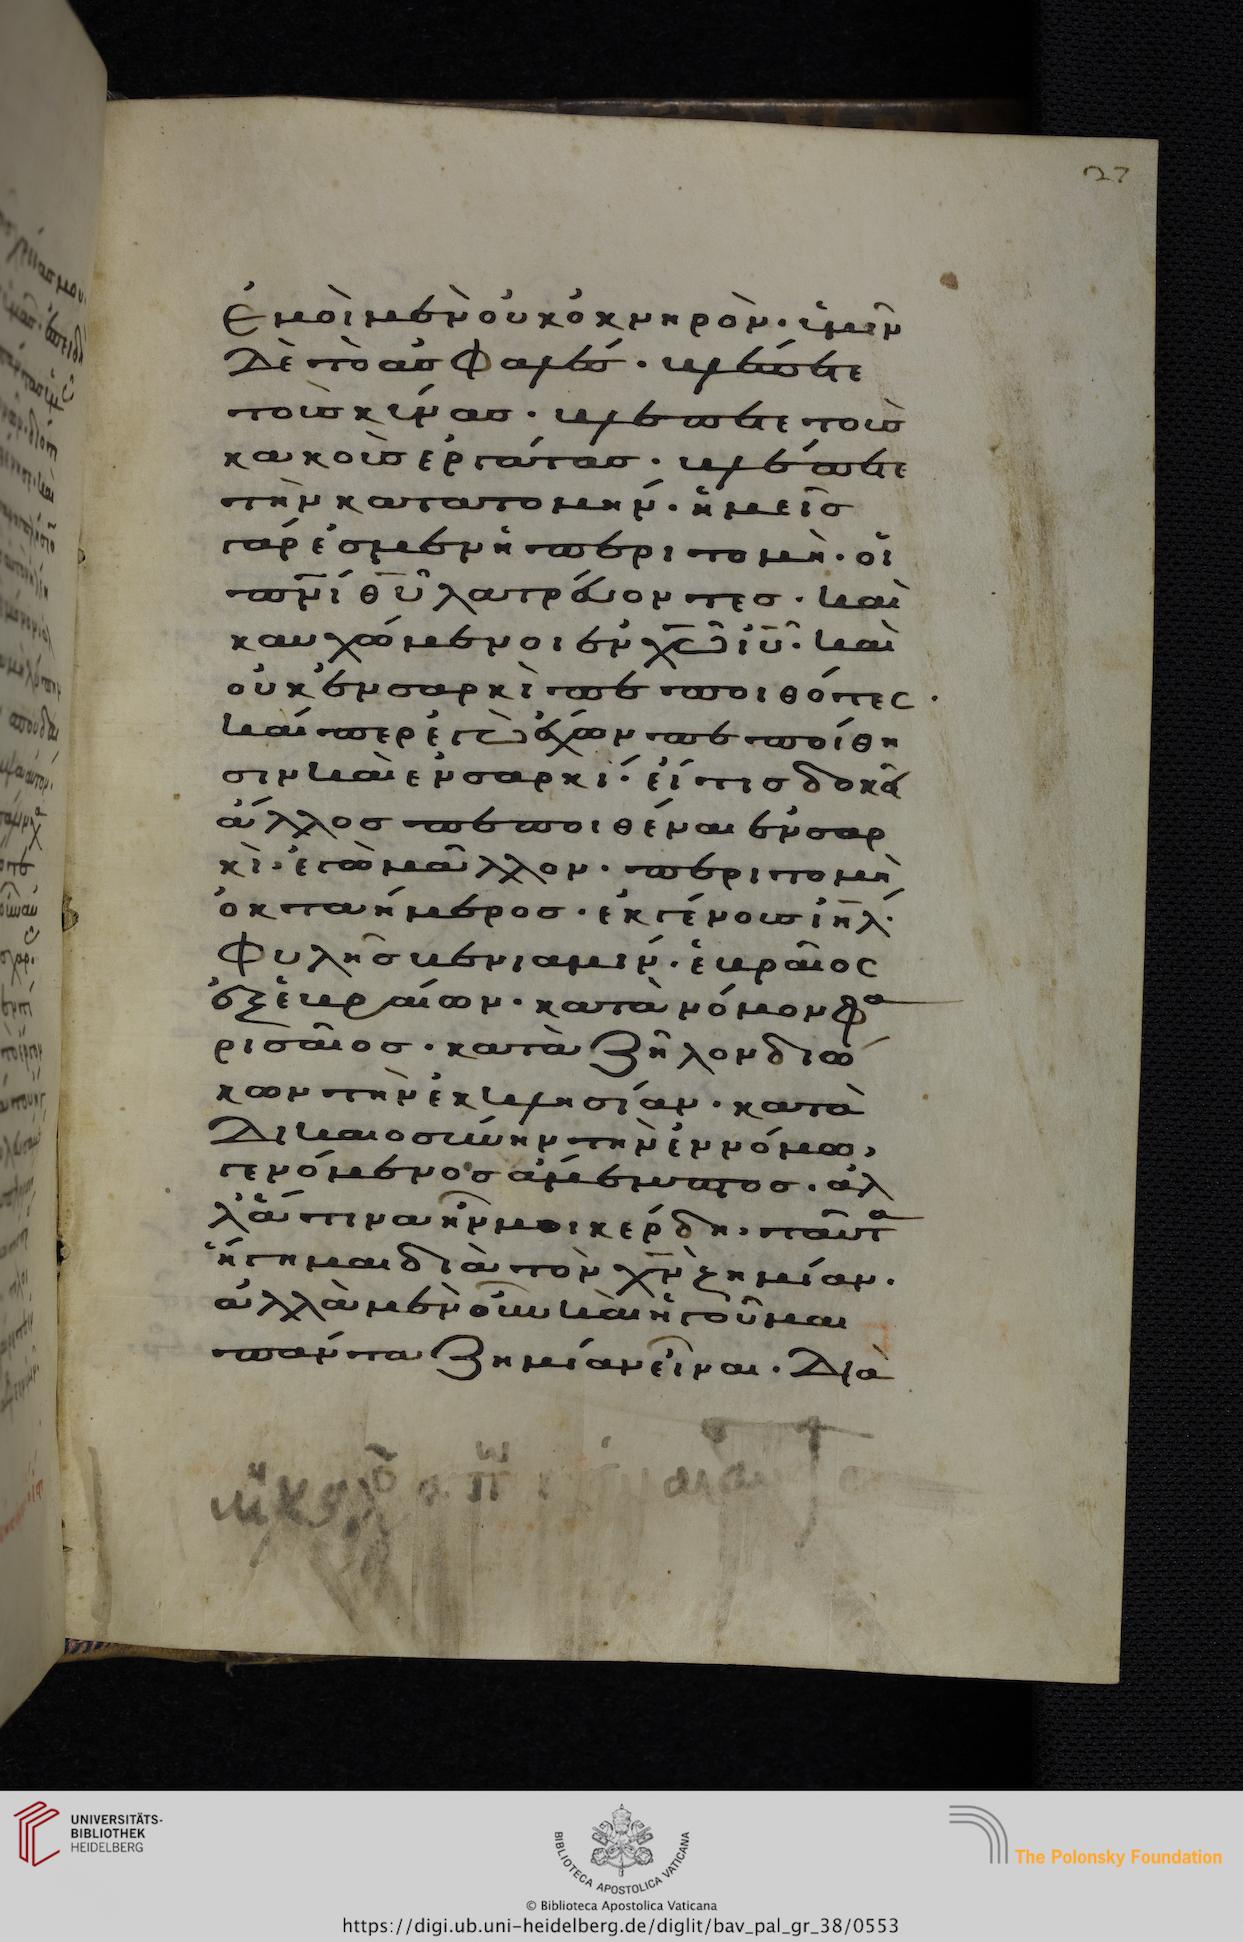 27
ἐμοὶ μὲν οὐκ ὀκνηρὸν· ὑμῖν
δὲ τὸ ἀσφαλές· βλέπετε
τοὺς κύνας· βλέπετε τοὺς
κακοὺς ἐργάτας· βλέπετε
τὴν κατατομήν· ἡμεῖς
γάρ ἐσμεν ἡ περιτομὴ· οἱ
πν̅ι θυ̅ λατρεύοντες· καὶ
καυχώμενοι ἐν χω̅ ιυ̅· καὶ
οὐκ ἐν σαρκὶ πεποιθότες·
καίπερ ἐγὼ ἔχων πεποίθη
σιν καὶ ἐν σαρκί· εἴ τις δοκεῖ
ἄλλος πεποιθέναι ἐν σαρ
κὶ· ἐγὼ μᾶλλον· περιτομὴ
ὀκταήμερος· ἐκ γένους ιη̅λ·
φυλῆς βενιαμίν· ἑβραῖος
ἐξ ἑβραίων· κατὰ νόμον φα
ρισαῖος· κατὰ ζῆλον διώ
κων τὴν ἐκκλησίαν· κατὰ
δικαιοσύνην τὴν ἐν νόμω,
γενόμενος ἄμεμπτος· ἀλ
λ' ἅτινα ἦν μοι κέρδη, ταῦτα
ἥγημαι διὰ τὸν χν̅ ζημίαν·
ἀλλὰ μὲν οὖν καὶ ἡγοῦμαι
πάντα ζημίαν εἶναι· διὰ
UNIVERSITÄTS-
BIBLIOTHEK
HEIDELBERG
BIBLIOTECA APOSTOLICA VATICANA
The Polonsky Foundation
© Biblioteca Apostolica Vaticana
https://digi.ub.uni-heidelberg.de/diglit/bav_pal_gr_38/0553